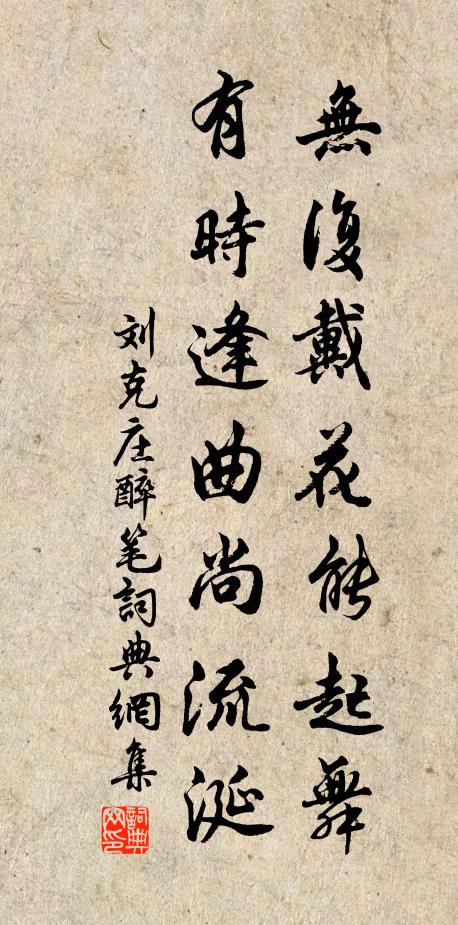 無復戴花能起舞
有時逢曲尚流涎
刘克庄醉笔詞典網集
詞典網印